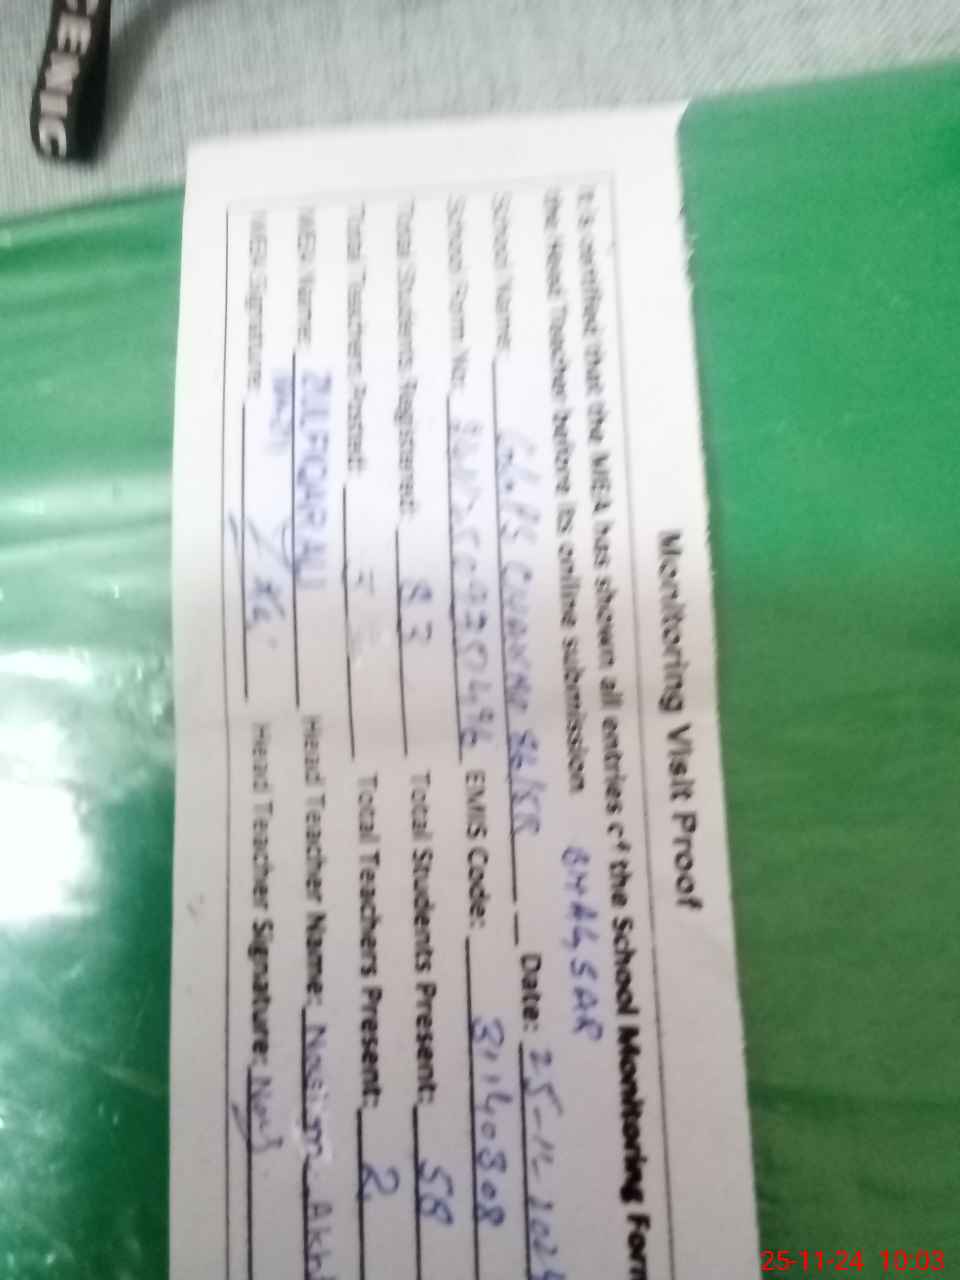 Monitoring Visit Proof
It is certified that the MEA has shown all entries of the School Monitoring Form
the Head Teacher before its online submission BHAGSAR
School Name: GGPS CHAK NO 86/5R Date: 25-11-2024
School Form No: EMIS Code: 31140308
Total Students Registered: 83 Total Students Present: 58
Total Teachers Posted: Total Teachers Present: 2
MEA Name: ZULFIQAR ALI Head Teacher Name: Nasim Akh
MEA Signature: Head Teacher Signature:
25-11-24 10:03